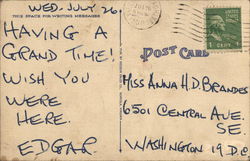 WED- JULY 26
THIS SPACE FOR WRITING MESSAGES
HAVING A
GRAND TIME!
WISH YOU
WERE
HERE.
EDGAR
POST CARD
1 CENT 1
MISS ANNA H.D. BRANDES
6501 CENTRAL AVE.
SE
WASHINGTON 19 D.C.